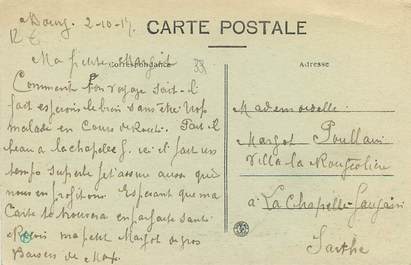 Bourg 2-10-17.
CARTE POSTALE
Correspondance
Adresse
Ma petite Margot
Comment bon voyage sait-il
fait espérons le bien sans être trop
malade en Cours de Route. Fait-il
beau à la chapelle G. ici il fait un
temps superbe je t'assure aussi que
nous en profitons. Espérant que ma
Carte te trouvera en parfaite santé
Reçois ma petite Margot de gros
Baisers de
Mademoiselle
Margot Poullain
Villa la
à La Chapelle-Gaugain
Sarthe